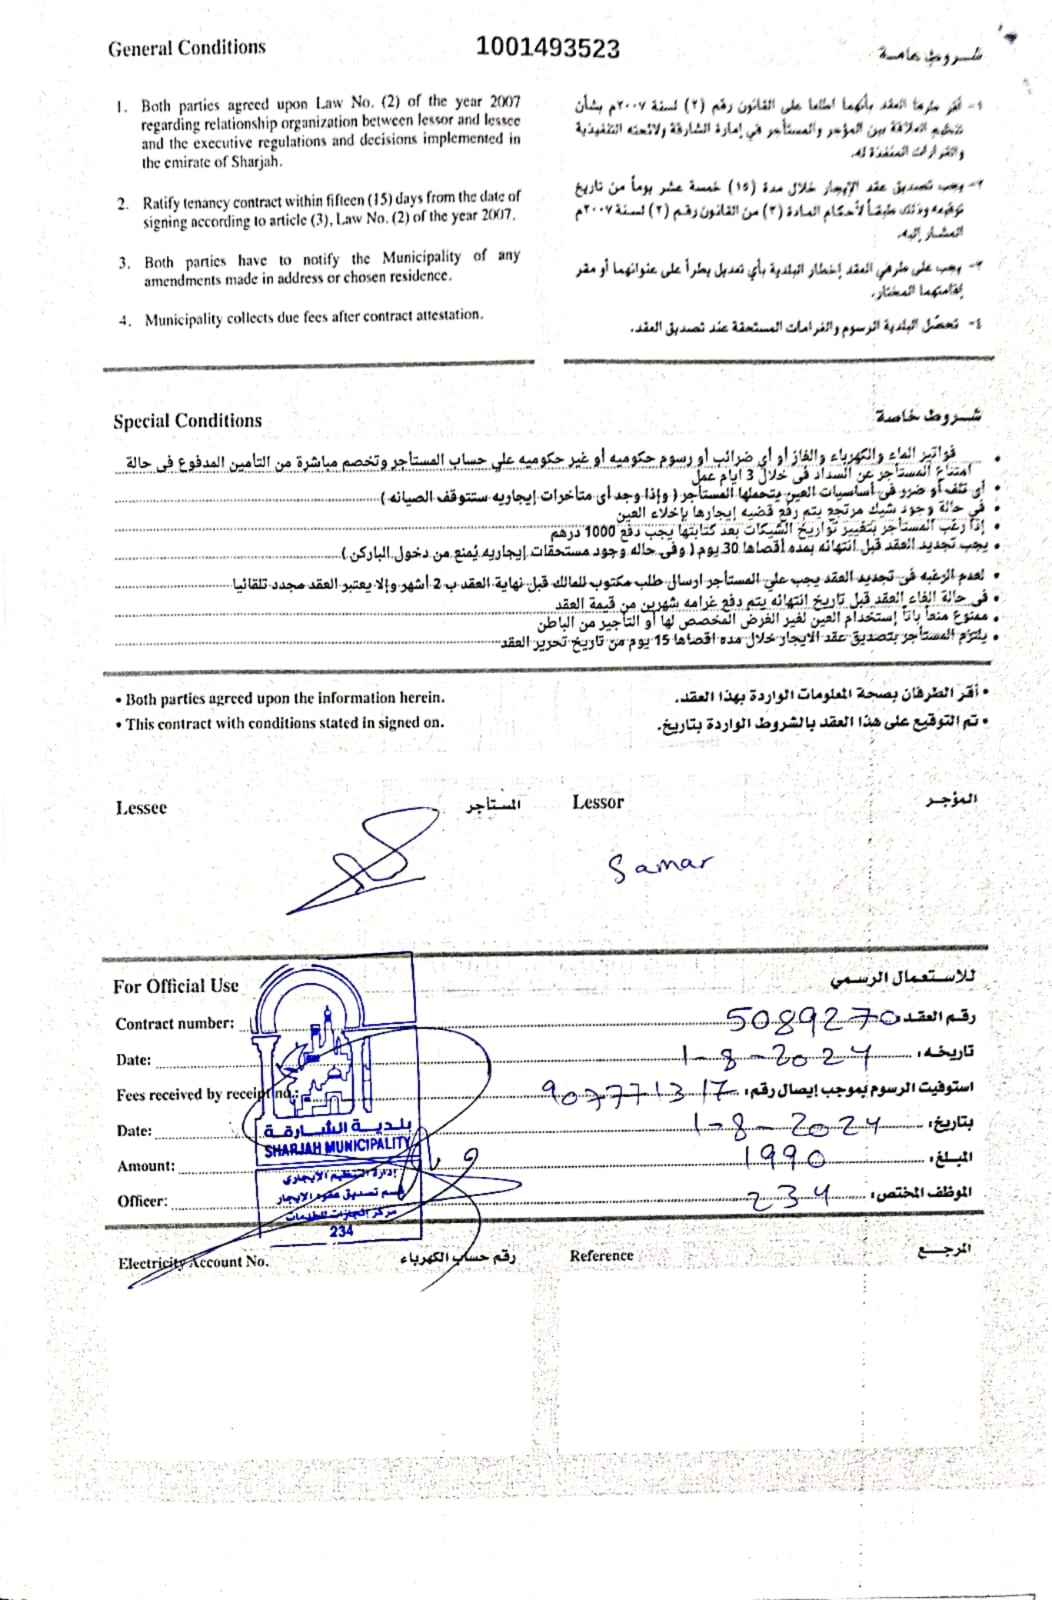 General Conditions
1001493523
شروط عامة
1. Both parties agreed upon Law No. (2) of the year 2007
regarding relationship organization between lessor and lessee
and the executive regulations and decisions implemented in
the emirate of Sharjah.
2. Ratify tenancy contract within fifteen (15) days from the date of
signing according to article (3), Law No. (2) of the year 2007.
3. Both parties have to notify the Municipality of any
amendments made in address or chosen residence.
4. Municipality collects due fees after contract attestation.
١- أقر طرفا العقد بأنهما اطلعا على القانون رقم (٢) لسنة ٢٠٠٧م بشأن
تنظيم العلاقة بين المؤجر والمستأجر في إمارة الشارقة ولائحته التنفيذية
والقرارات المنفذة له.
٢- يجب تصديق عقد الإيجار خلال مدة (١٥) خمسة عشر يوماً من تاريخ
توقيعه وذلك طبقاً لأحكام المادة (٣) من القانون رقم (٢) لسنة ٢٠٠٧م
المشار إليه.
٣- يجب على طرفي العقد إخطار البلدية بأي تعديل يطرأ على عنوانهما أو مقر
إقامتهما المختار.
٤- تحصّل البلدية الرسوم والغرامات المستحقة عند تصديق العقد.
Special Conditions
شروط خاصة
فواتير الماء والكهرباء والغاز أو أي ضرائب أو رسوم حكوميه أو غير حكوميه علي حساب المستأجر وتخصم مباشرة من التأمين المدفوع فى حالة
امتناع المستأجر عن السداد فى خلال 3 ايام عمل
• أي تلف أو ضرر فى أساسيات العين يتحملها المستأجر ( وإذا وجد أى متأخرات إيجاريه ستتوقف الصيانه )
• في حالة وجود شيك مرتجع يتم رفع قضيه إيجارها بإخلاء العين
• إذا رغب المستأجر بتغيير تواريخ الشيكات بعد كتابتها يجب دفع 1000 درهم
• يجب تجديد العقد قبل انتهائه بمده أقصاها 30 يوم ( وفى حاله وجود مستحقات إيجاريه يُمنع من دخول الباركن )
• لعدم الرغبه فى تجديد العقد يجب علي المستأجر ارسال طلب مكتوب للمالك قبل نهاية العقد ب 2 أشهر وإلا يعتبر العقد مجدد تلقائيا
• فى حالة الغاء العقد قبل تاريخ انتهائه يتم دفع غرامه شهرين من قيمة العقد
• ممنوع منعاً باتاً إستخدام العين لغير الغرض المخصص لها أو التأجير من الباطن
• يلتزم المستأجر بتصديق عقد الايجار خلال مده اقصاها 15 يوم من تاريخ تحرير العقد
• Both parties agreed upon the information herein.
• This contract with conditions stated in signed on.
• أقر الطرفان بصحة المعلومات الواردة بهذا العقد.
• تم التوقيع على هذا العقد بالشروط الواردة بتاريخ.
Lessee المستأجر
Lessor المؤجر
Samar
For Official Use للاستعمال الرسمي
Contract number: 5089270 رقم العقد
Date: 1-8-2024 تاريخه:
Fees received by receipt no.: 907771317 استوفيت الرسوم بموجب إيصال رقم:
Date: 1-8-2024 بتاريخ:
Amount: 1990 المبلغ:
Officer: 234 الموظف المختص:
بلدية الشارقة
SHARJAH MUNICIPALITY
إدارة التنظيم الإيجاري
قسم تصديق عقود الإيجار
234
Electricity Account No. رقم حساب الكهرباء
Reference المرجع